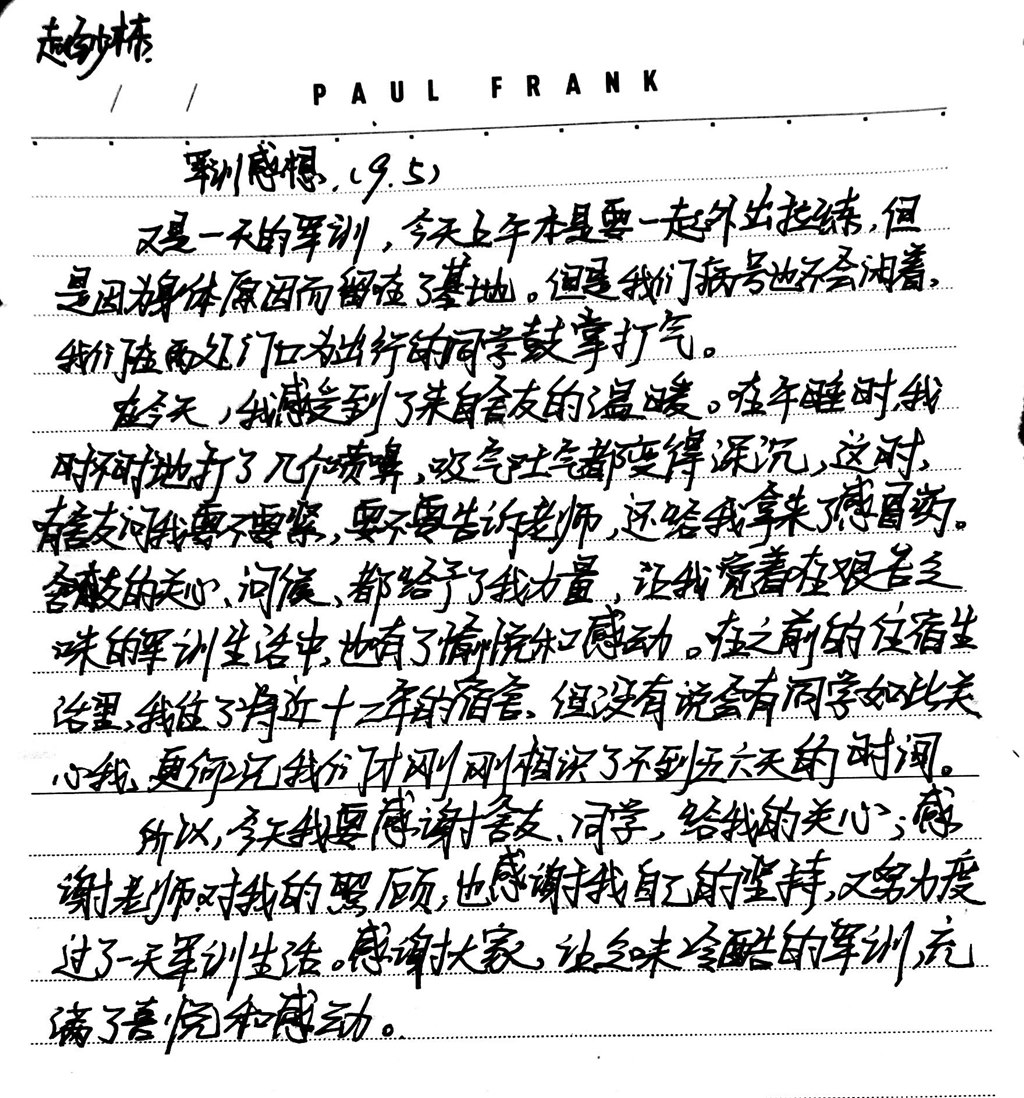 赵砂栋
/ / PAUL FRANK
军训感想.(9.5)
又是一天的军训,今天上午本是要一起外出拉练,但
是因为身体原因而留在了基地。但是我们病号也不会闲着,
我们在两处门口为出行的同学鼓掌打气。
在今天,我感受到了来自舍友的温暖。在午睡时,我
时不时地打了几个喷嚏,吸气吐气都变得深沉,这时,
有舍友问我要不要紧,要不要告诉老师,还给我拿来了感冒药。
舍友的关心、问候、都给予了我力量,让我觉着在艰苦乏
味的军训生活中,也有了愉悦和感动。在之前的住宿生
活里,我住了将近十二年的宿舍、但没有说会有同学如此关
心我,更何况我们才刚刚相识了不到五六天的时间。
所以,今天我要感谢舍友、同学,给我的关心;感
谢老师对我的照顾;也感谢我自己的坚持,又努力度
过了一天军训生活。感谢大家,让乏味冷酷的军训,充
满了喜悦和感动。